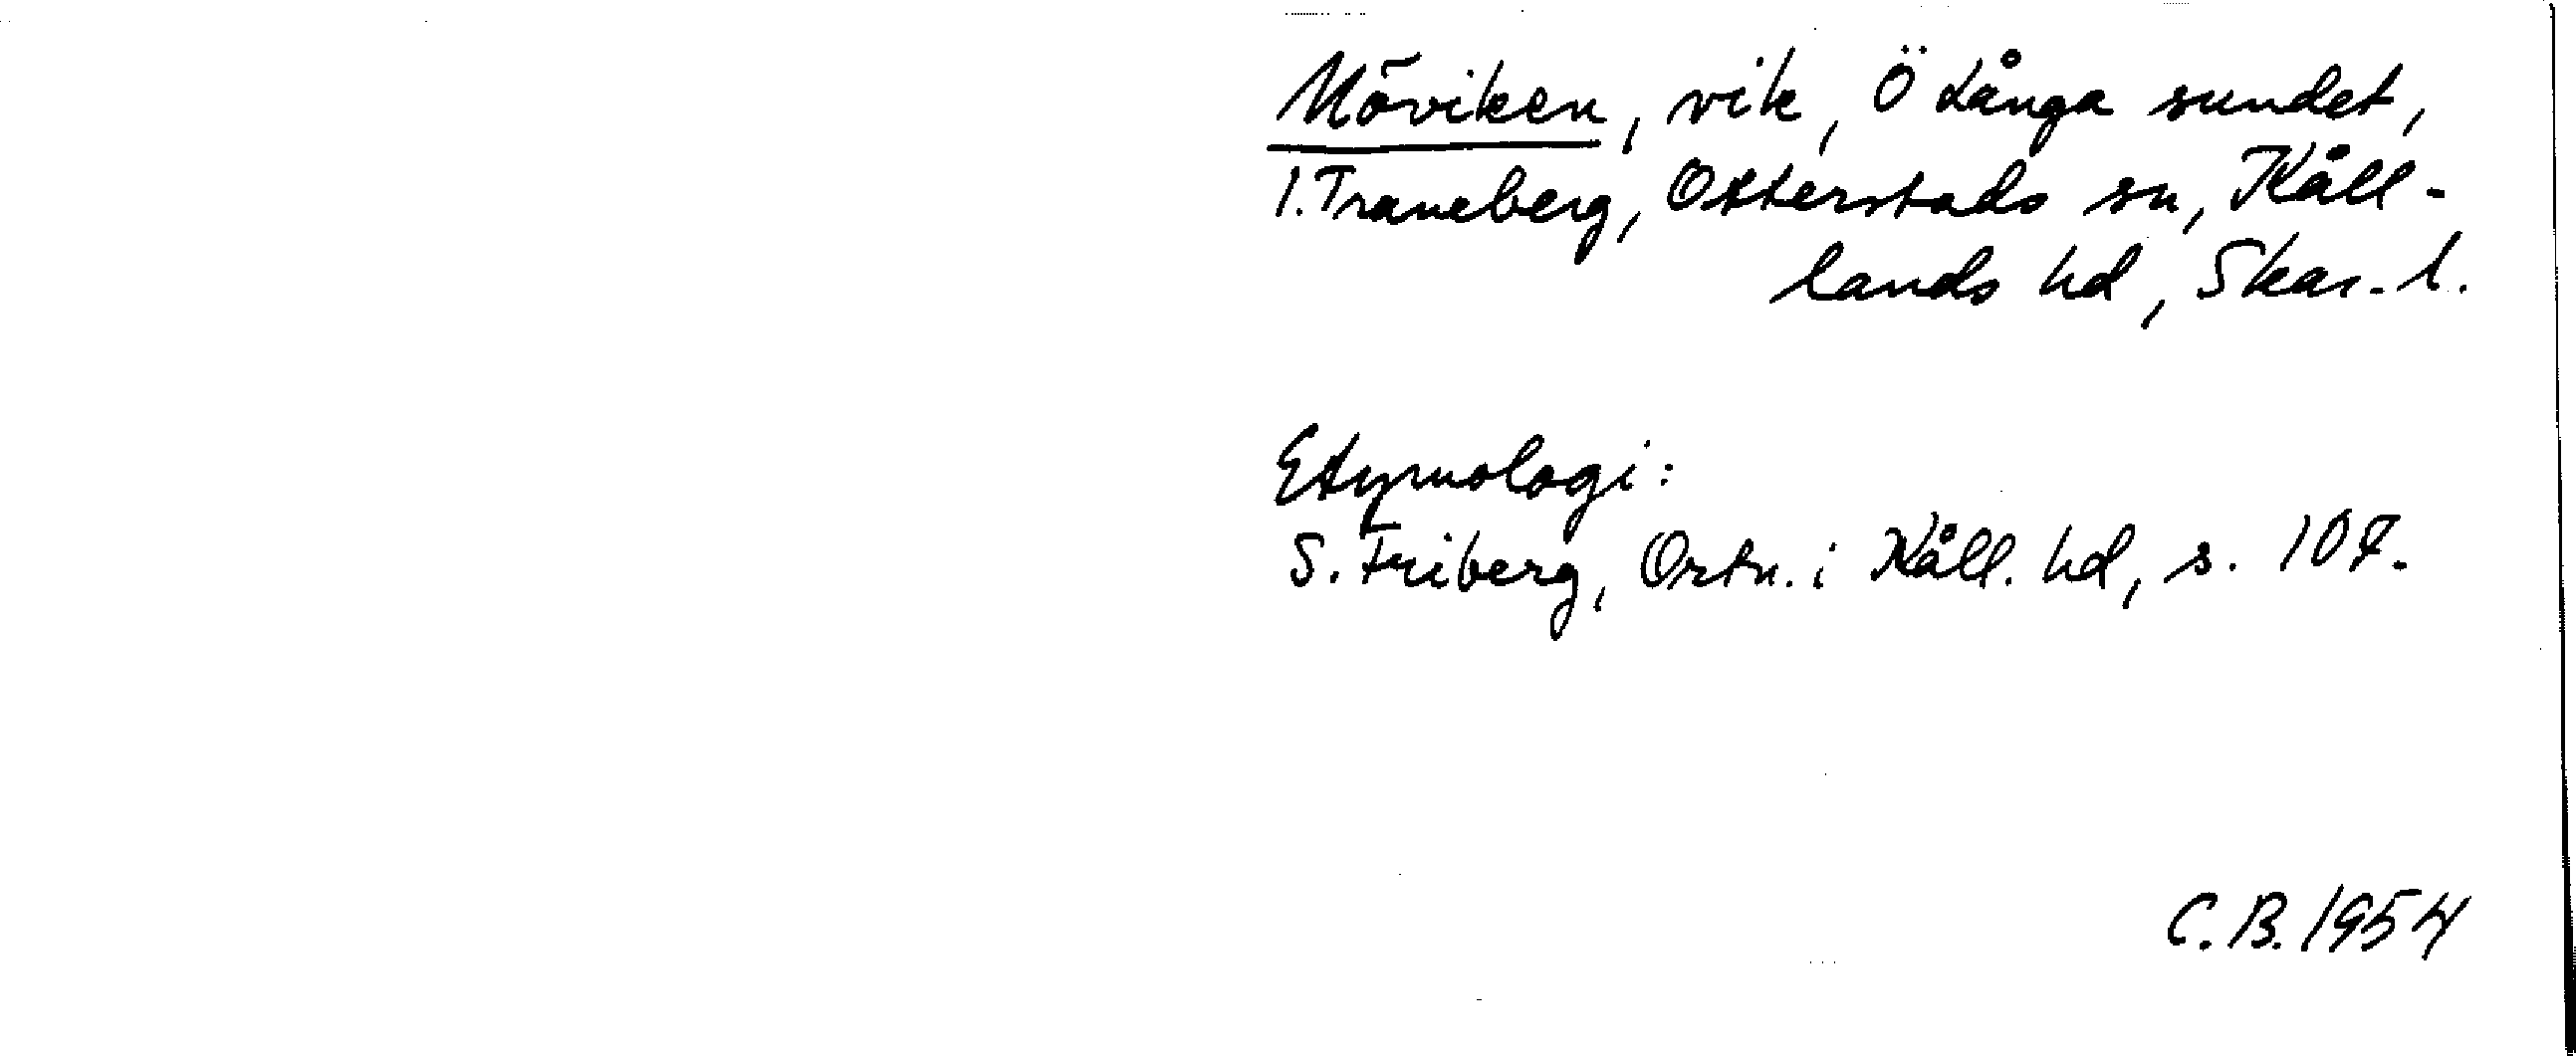 Möviken, vik, Ö Långa sundet,
l. Traneberg, Otterstads sn, Kåll-
lands hd, Skar. l.
Etymologi:
S. Friberg, Ortn. i Kåll. hd, s. 107.
C.B. 1954